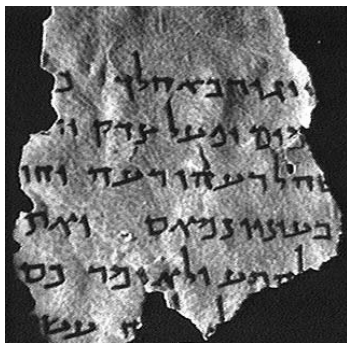 יגור באהלך מ
מים ופעל צדק וד
שה לרעהו רעה וחר
בעיניו נמאס ואת
להרע ולא ימר כס
עש